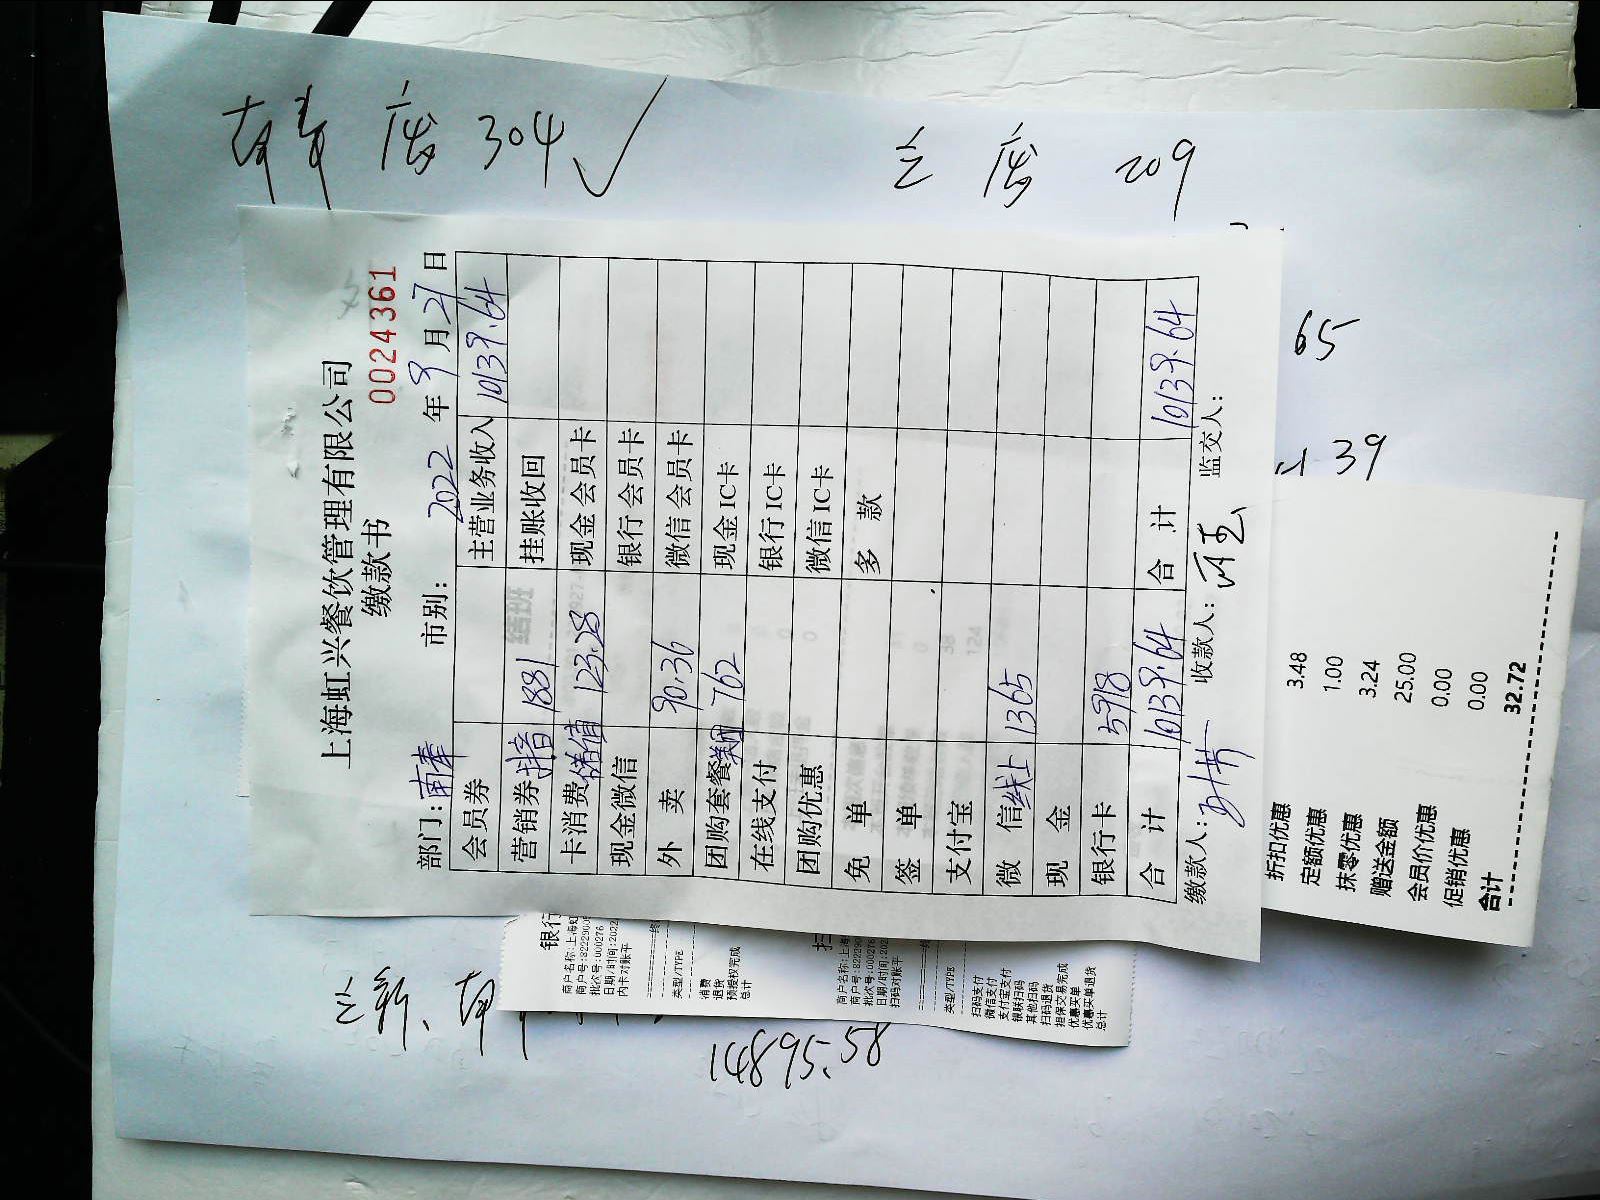 店 304
店 209
65
39
上海虹兴餐饮管理有限公司
缴款书
0024361
部门:南奉 市别: 2022 年 9 月 27 日
会员券 主营业务收入 10139.64
营销券 抖音 1881 挂账收回
卡消费 储值 123.28 现金会员卡
现金微信 银行会员卡
外 卖 90.36 微信会员卡
团购套餐 美团 762 现金IC卡
在线支付 银行IC卡
团购优惠 微信IC卡
免 单 多 款
签 单
支付宝
微 信 线上 1365
现 金
银行卡 5918
合 计 10139.64 合 计 10139.64
缴款人: 收款人: 监交人:
折扣优惠 3.48
定额优惠 1.00
抹零优惠 3.24
赠送金额 25.00
会员价优惠 0.00
促销优惠 0.00
合计 32.72
银行
商户名称:上海虹
商户号:8222900
批次号:000276
日期/时间:202
内卡对账平
类型/TYPE
消费
退货
预授权完成
总计
扫
商户名称:上海
商户号:822290
批次号:000276
日期/时间:202
扫码对账平
类型/TYPE
扫码支付
微信支付
支付宝支付
银联扫码
其他扫码
扫码退货
担保交易完成
优惠买单
优惠买单退货
总计